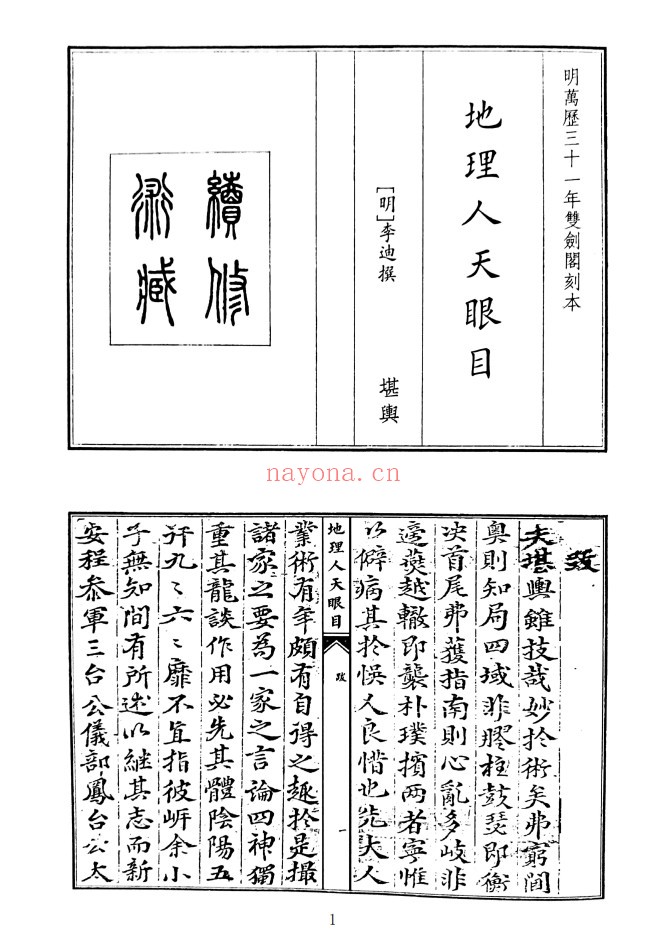 明萬歷三十一年雙劍閣刻本
地理人天眼目
[明]李迪撰
堪輿
續修
術藏
nayona.cn
跋
夫堪輿雖技哉妙於術矣弗窮閫
奧則知局四域非膠柱鼓瑟即衡
决首尾弗獲指南則心亂多岐非
越轍即襲朴璞擯两者寧惟
以僻痛其於悞人良惜也先大人
地理人天眼目
跋
一
業術有年頗有自得之趣於是撮
諸家之要為一家之言論四神獨
重其龍談作用必先其體陰陽五
行九〻六〻靡不宜指彼岍余小
子無知間有所述以継其志而新
安程叅軍三台公儀部鳳台公太
1